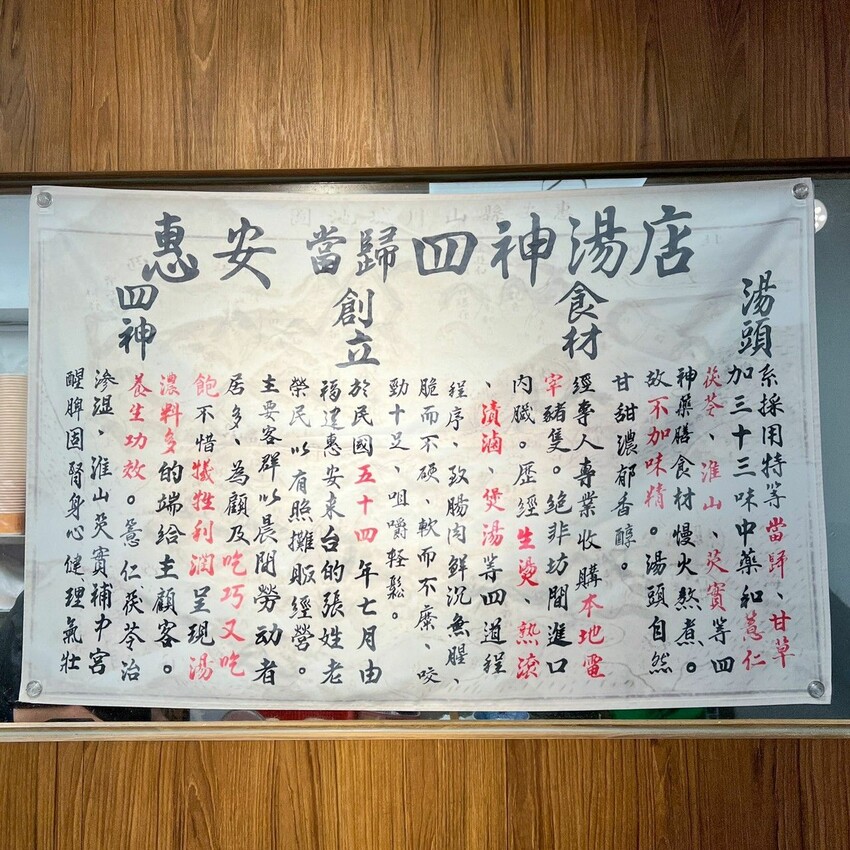 惠安 當歸四神湯店
湯頭
系採用特等當歸、甘草
加三十三味中藥和薏仁
茯苓、淮山、芡實等四
神藥膳食材慢火熬煮。
故不加味精。湯頭自然
甘甜濃郁香醇。
食材
經專人專業收購本地電
宰豬隻。絕非坊間進口
內臟。歷經生燙、熱滾
、漬滷、煲湯等四道程
程序、致腸肉鮮沉無腥、
脆而不硬、軟而不糜、咬
勁十足、咀嚼輕鬆。
創立
於民國五十四年七月由
福建惠安來台的張姓老
榮民以有照攤販經營。
主要客群以晨間勞动者
居多、為顧及吃巧又吃
飽不惜犧牲利潤呈現湯
濃料多的端給主顧客。
四神
養生功效。薏仁茯苓治
滲溼、淮山芡實補中宮
醒脾固腎身心健理氣壯